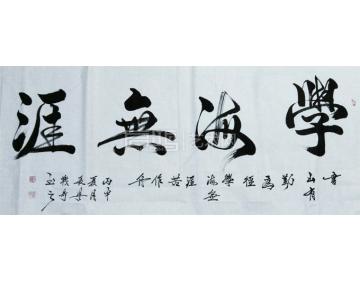 學海無涯
書山有勤為徑學海無涯苦作舟
丙申夏月